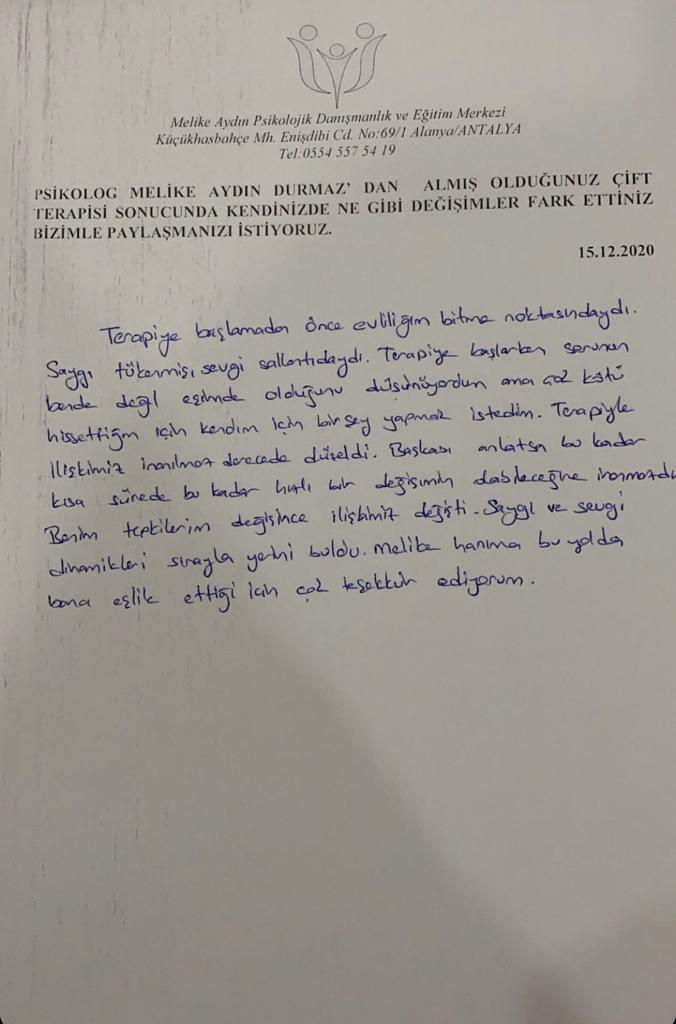 Melike Aydın Psikolojik Danışmanlık ve Eğitim Merkezi
Küçükhasbahçe Mh. Enişdibi Cd. No:69/1 Alanya/ANTALYA
Tel:0554 557 54 19
PSİKOLOG MELİKE AYDIN DURMAZ' DAN ALMIŞ OLDUĞUNUZ ÇİFT
TERAPİSİ SONUCUNDA KENDİNİZDE NE GİBİ DEĞİŞİMLER FARK ETTİNİZ
BİZİMLE PAYLAŞMANIZI İSTİYORUZ.
15.12.2020
Terapiye başlamadan önce evliliğim bitme noktasındaydı.
Saygı tükenmiş, sevgi sallantıdaydı. Terapiye başlarken sorunun
bende değil eşimde olduğunu düşünüyordum ama çok kötü
hissettiğim için kendim için bir şey yapmak istedim. Terapiyle
ilişkimiz inanılmaz derecede düzeldi. Başkası anlatsa bu kadar
kısa sürede bu kadar hızlı bir değişimin olabileceğine inanmazdım
Benim tepkilerim değişince ilişkimiz değişti. Saygı ve sevgi
dinamikleri sırayla yerini buldu. Melike hanıma bu yolda
bana eşlik ettiği için çok teşekkür ediyorum.